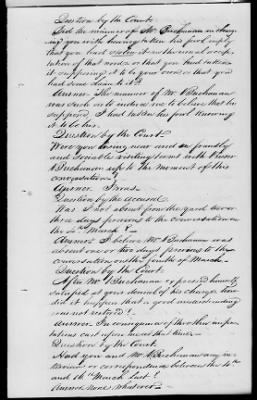 Question by the Court.
Did the manner of Mr Buchanan in charging
you with having taken his fowl imply
that you had stolen it in the usual acceptation
of that word, or that you had taken
it supposing it to be your own or that you
had some claim to it?
Answer. The manner of Mr Buchanan
was such as to induce me to believe that he
supposed I had taken his fowl knowing
it to be his.
Question by the Court.
Were you living near and on friendly
and sociable visiting terms with
Buchanan up to the moment of this
conversation?
Answer I was.
Question by the accused.
Was I not absent from the yard two or
three days previous to the conversation on
the 4th March?
Answer I believe Mr Buchanan was
absent one or two days previous to the
conversation on the fourth of March.
Question by the Court.
After Mr Buchanan expressed himself
satisfied at your denial of his charge, how
did it happen that a good understanding
was not restored?
Answer In consequence of the other imputations
cast upon me at that time.
Question by the Court.
Had you and Mr Buchanan any interviews
or correspondence between the 4th
and 16th March last?
Answer None whatever.